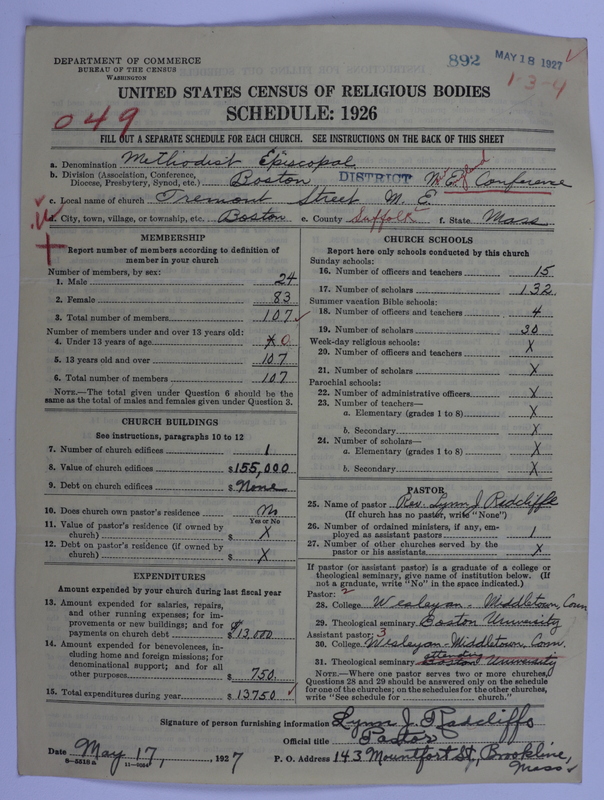 DEPARTMENT OF COMMERCE
BUREAU OF THE CENSUS
WASHINGTON
892 MAY 18 1927
1-3-4
UNITED STATES CENSUS OF RELIGIOUS BODIES
SCHEDULE: 1926
049
FILL OUT A SEPARATE SCHEDULE FOR EACH CHURCH. SEE INSTRUCTIONS ON THE BACK OF THIS SHEET
a. Denomination Methodist Episcopal
b. Division (Association, Conference, Diocese, Presbytery, Synod, etc.) Boston DISTRICT M.E. Conference
c. Local name of church Tremont Street M. E.
d. City, town, village, or township, etc. Boston e. County Suffolk f. State Mass
MEMBERSHIP
Report number of members according to definition of
member in your church
Number of members, by sex:
1. Male 24
2. Female 83
3. Total number of members 107
Number of members under and over 13 years old:
4. Under 13 years of age X 0
5. 13 years old and over 107
6. Total number of members 107
NOTE.—The total given under Question 6 should be the
same as the total of males and females given under Question 3.
CHURCH BUILDINGS
See instructions, paragraphs 10 to 12
7. Number of church edifices 1
8. Value of church edifices $155,000
9. Debt on church edifices $None
10. Does church own pastor's residence No
Yes or No
11. Value of pastor's residence (if owned by
church) $ X
12. Debt on pastor's residence (if owned by
church) $ X
EXPENDITURES
Amount expended by your church during last fiscal year
13. Amount expended for salaries, repairs,
and other running expenses; for im-
provements or new buildings; and for
payments on church debt $13,000
14. Amount expended for benevolences, in-
cluding home and foreign missions; for
denominational support; and for all
other purposes $ 750.
15. Total expenditures during year $ 13750
CHURCH SCHOOLS
Report here only schools conducted by this church
Sunday schools:
16. Number of officers and teachers 15
17. Number of scholars 132
Summer vacation Bible schools:
18. Number of officers and teachers 4
19. Number of scholars 30
Week-day religious schools:
20. Number of officers and teachers X
21. Number of scholars X
Parochial schools:
22. Number of administrative officers X
23. Number of teachers—
a. Elementary (grades 1 to 8) X
b. Secondary X
24. Number of scholars—
a. Elementary (grades 1 to 8) X
b. Secondary X
PASTOR
25. Name of pastor Rev. Lynn J Radcliffe
(If church has no pastor, write "None")
26. Number of ordained ministers, if any, em-
ployed as assistant pastors 1
27. Number of other churches served by the
pastor or his assistants X
If pastor (or assistant pastor) is a graduate of a college or
theological seminary, give name of institution below. (If
not a graduate, write "No" in the space indicated.)
Pastor: 2
28. College Wesleyan - Middletown, Conn
29. Theological seminary Boston University
Assistant pastor: 3
30. College Wesleyan - Middletown, Conn.
attending
31. Theological seminary Boston University
NOTE.—Where one pastor serves two or more churches,
Questions 28 and 29 should be answered only on the schedule
for one of the churches; on the schedules for the other churches,
write "See schedule for church."
Signature of person furnishing information Lynn J. Radcliffe
Official title Pastor
Date May 17, 1927 P. O. Address 143 Mountfort St, Brookline,
Mass
8-5218a 11-9084